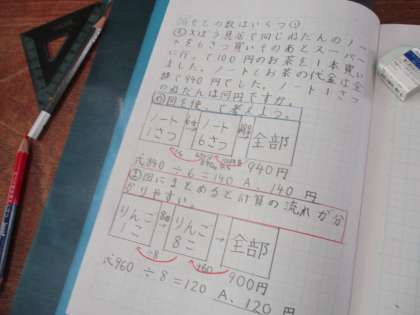 もとの数はいくつ
ぶんぼう具店で同じねだんのノー
トを6さつ買い、そのあとスーパー
に行って100円のお茶を1本買い
ました。ノートとお茶の代金は全
部で940円でした。ノート1さつ
のねだんは何円ですか。
図を使って考えよう。
ノート
1さつ
ノート
6さつ
全部
940円
式840÷6=140 A.140円
図にまとめると計算の流れが分
かりやすい。
りんご
1こ
りんご
8こ
全部
÷8
+60
900円
式960÷8=120 A.120円